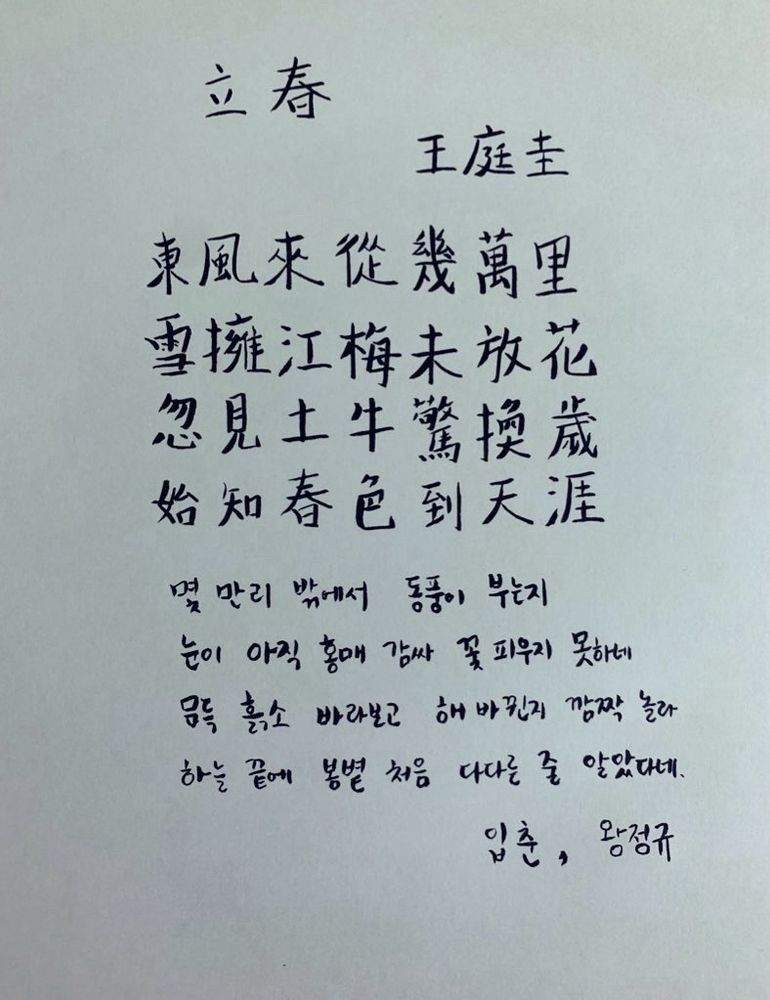 立春
王庭圭
東風來從幾萬里
雪擁江梅未放花
忽見土牛驚換歲
始知春色到天涯
몇 만리 밖에서 동풍이 부는지
눈이 아직 홍매 감싸 꽃 피우지 못하네
문득 흙소 바라보고 해 바뀐지 깜짝 놀라
하늘 끝에 봄볕 처음 다다른 줄 알았다네.
입춘, 왕정규